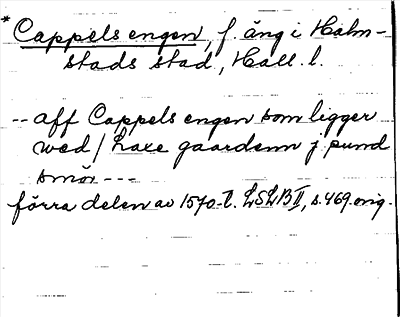 * Cappels engen, f. äng i Halm-
stads stad, Hall. l.
-- aff Cappels engen som ligger
wed / Laxe gaardenn j pund
smör ---
förra delen av 1570-t. LSLB II, s. 469. orig.